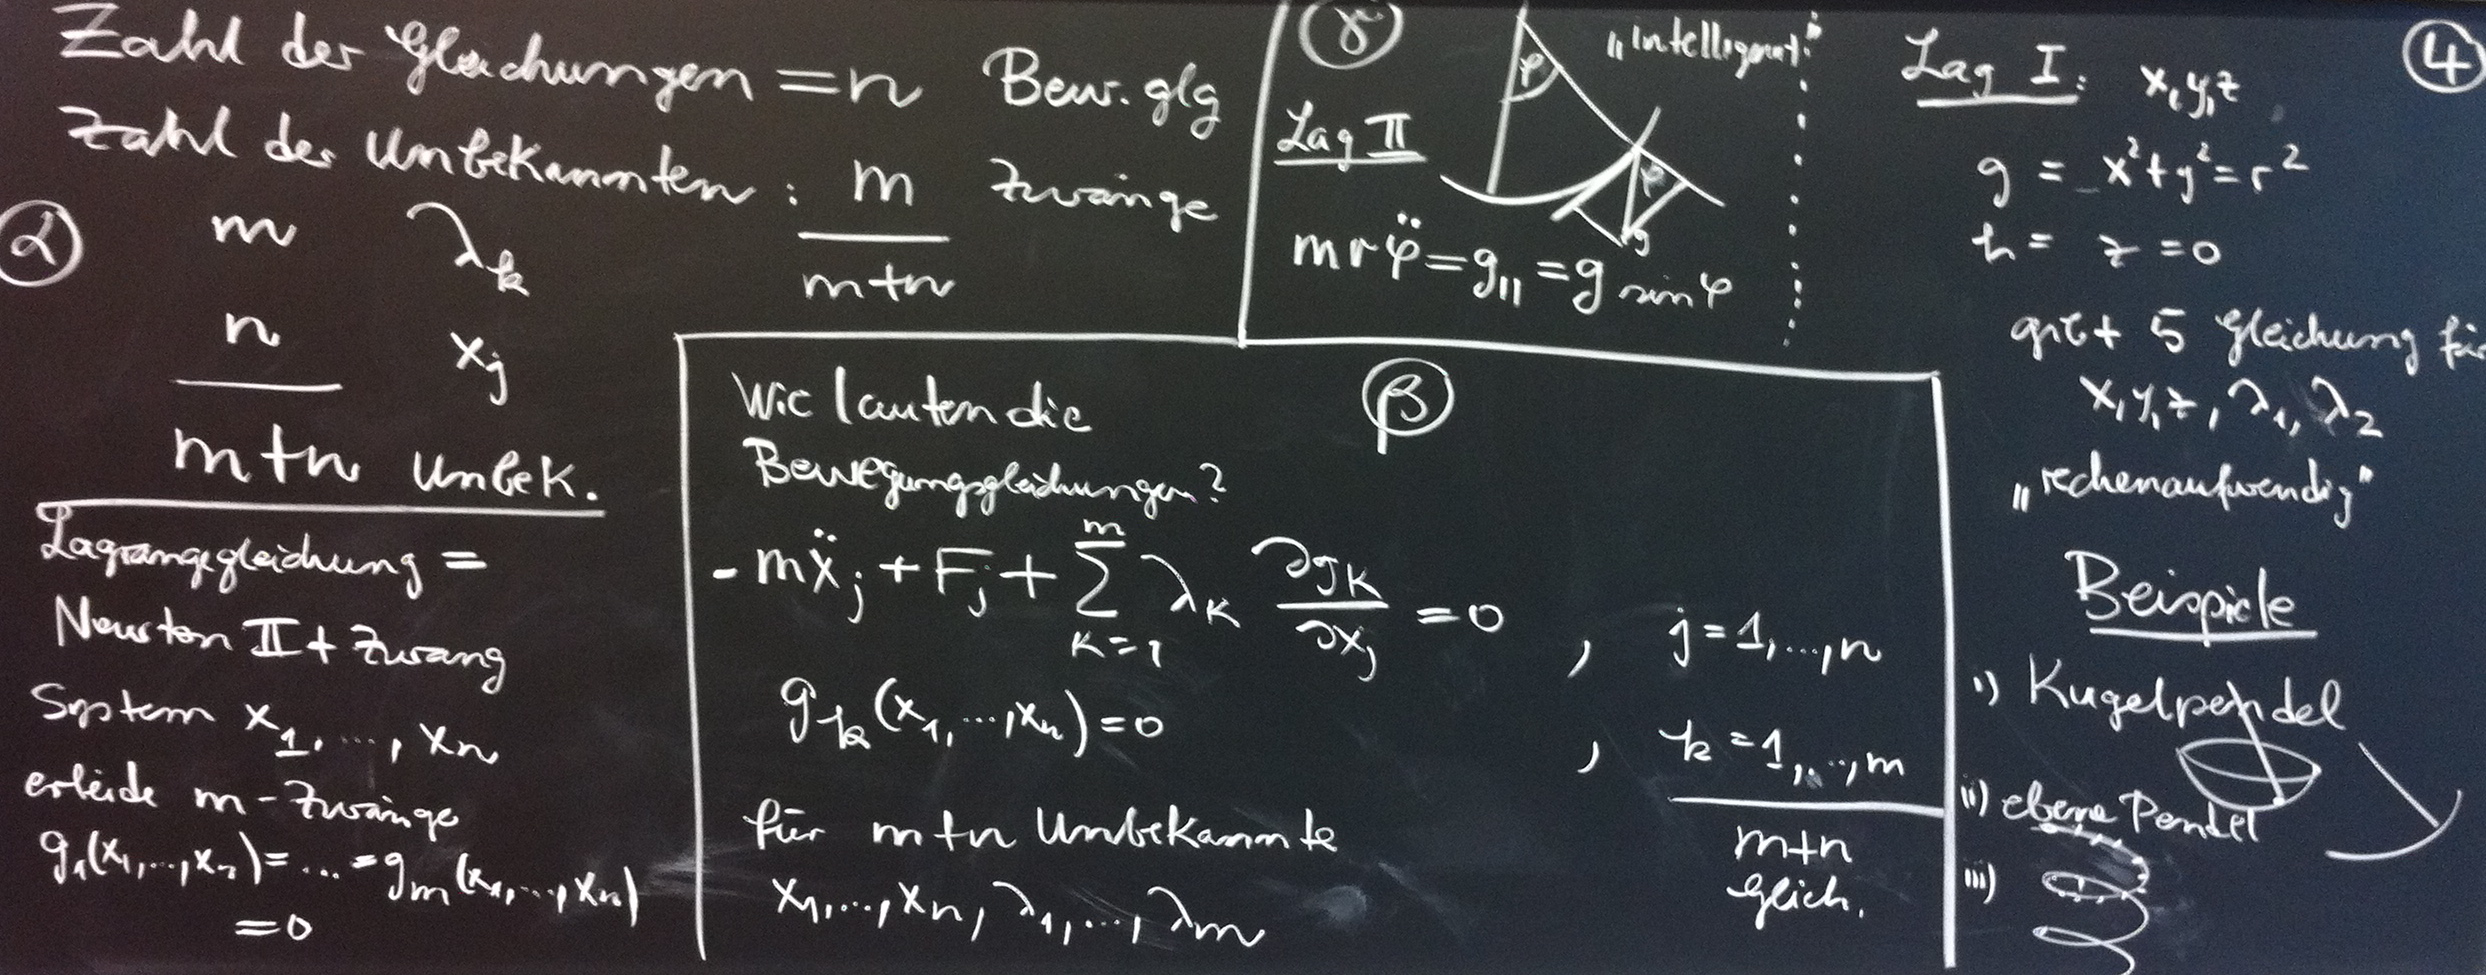 Zahl der Gleichungen = n Bew. glg
Zahl der Unbekannten : m Zwänge
m+n
α
m λₖ
n xⱼ
m+n Unbek.
Lagrangegleichung =
Newton II + Zwang
System x₁, ..., xₙ
erleide m-Zwänge
g₁(x₁,...,xₙ) = ... = gₘ(x₁,...,xₙ)
=0
β
Wie lauten die
Bewegungsgleichungen?
-mẍⱼ + Fⱼ + ∑ₖ₌₁ᵐ λₖ ∂gₖ/∂xⱼ = 0 , j=1,...,n
gₖ(x₁,...,xₙ)=0 , k=1,...,m
für m+n Unbekannte
m+n
Gleich.
x₁,...,xₙ, λ₁,...,λₘ
γ
„intelligent"
Lag II
φ
φ
g
mrφ̈ = g₁₁ = g sin φ
4
Lag I: x,y,z
g = x²+y²=r²
h = z =0
gibt 5 Gleichung für
x,y,z, λ₁, λ₂
„rechenaufwendig"
Beispiele
i) Kugelpendel
ii) ebene Pendel
iii)